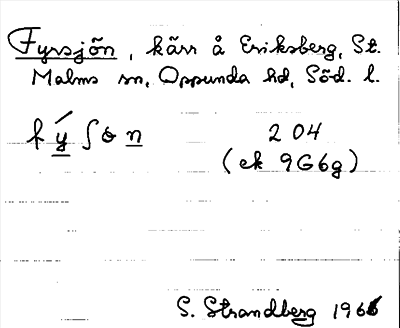 Fyrsjön, kärr å Eriksberg, St.
Malms sn, Oppunda hd, Söd. l.
fý∫ơn 204
(ek 9G6g)
S. Strandberg 1966